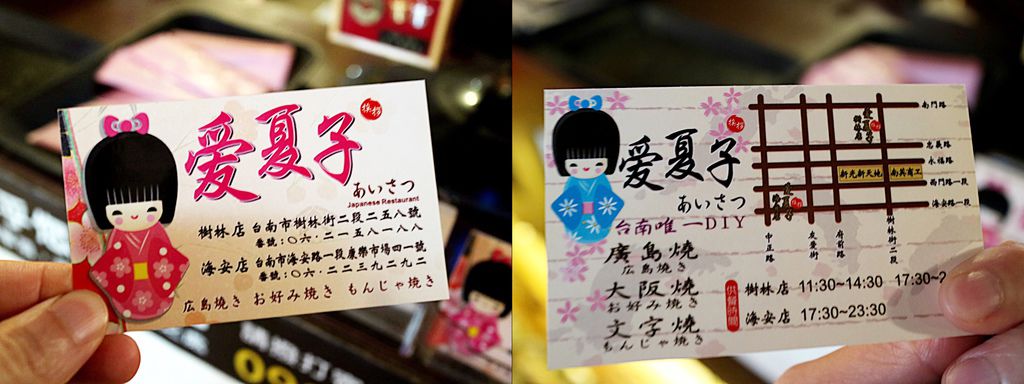 愛夏子
挨拶
あいさつ
Japanese Restaurant
樹林店 台南市樹林街二段二五八號
番號:〇六・二一五八一八八
海安店 台南市海安路一段康樂市場四一號
番號:〇六・二二三九二九二
広島焼き お好み焼き もんじゃ焼き
愛夏子
挨拶
あいさつ
台南唯一DIY
廣島燒
広島焼き
大阪燒
お好み焼き
文字燒
もんじゃ焼き
南門路
忠義路
永福路
新光新天地
南英商工
西門路一段
海安路一段
中正路
友愛街
府前路
樹林街二段
樹林店 11:30~14:30 17:30~2
海安店 17:30~23:30